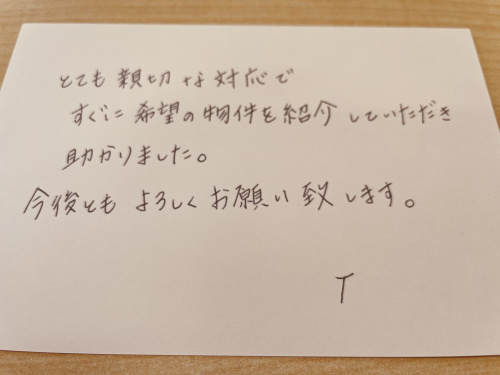 とても親切な対応で
すぐに希望の物件を紹介していただき
助かりました。
今後ともよろしくお願い致します。
T